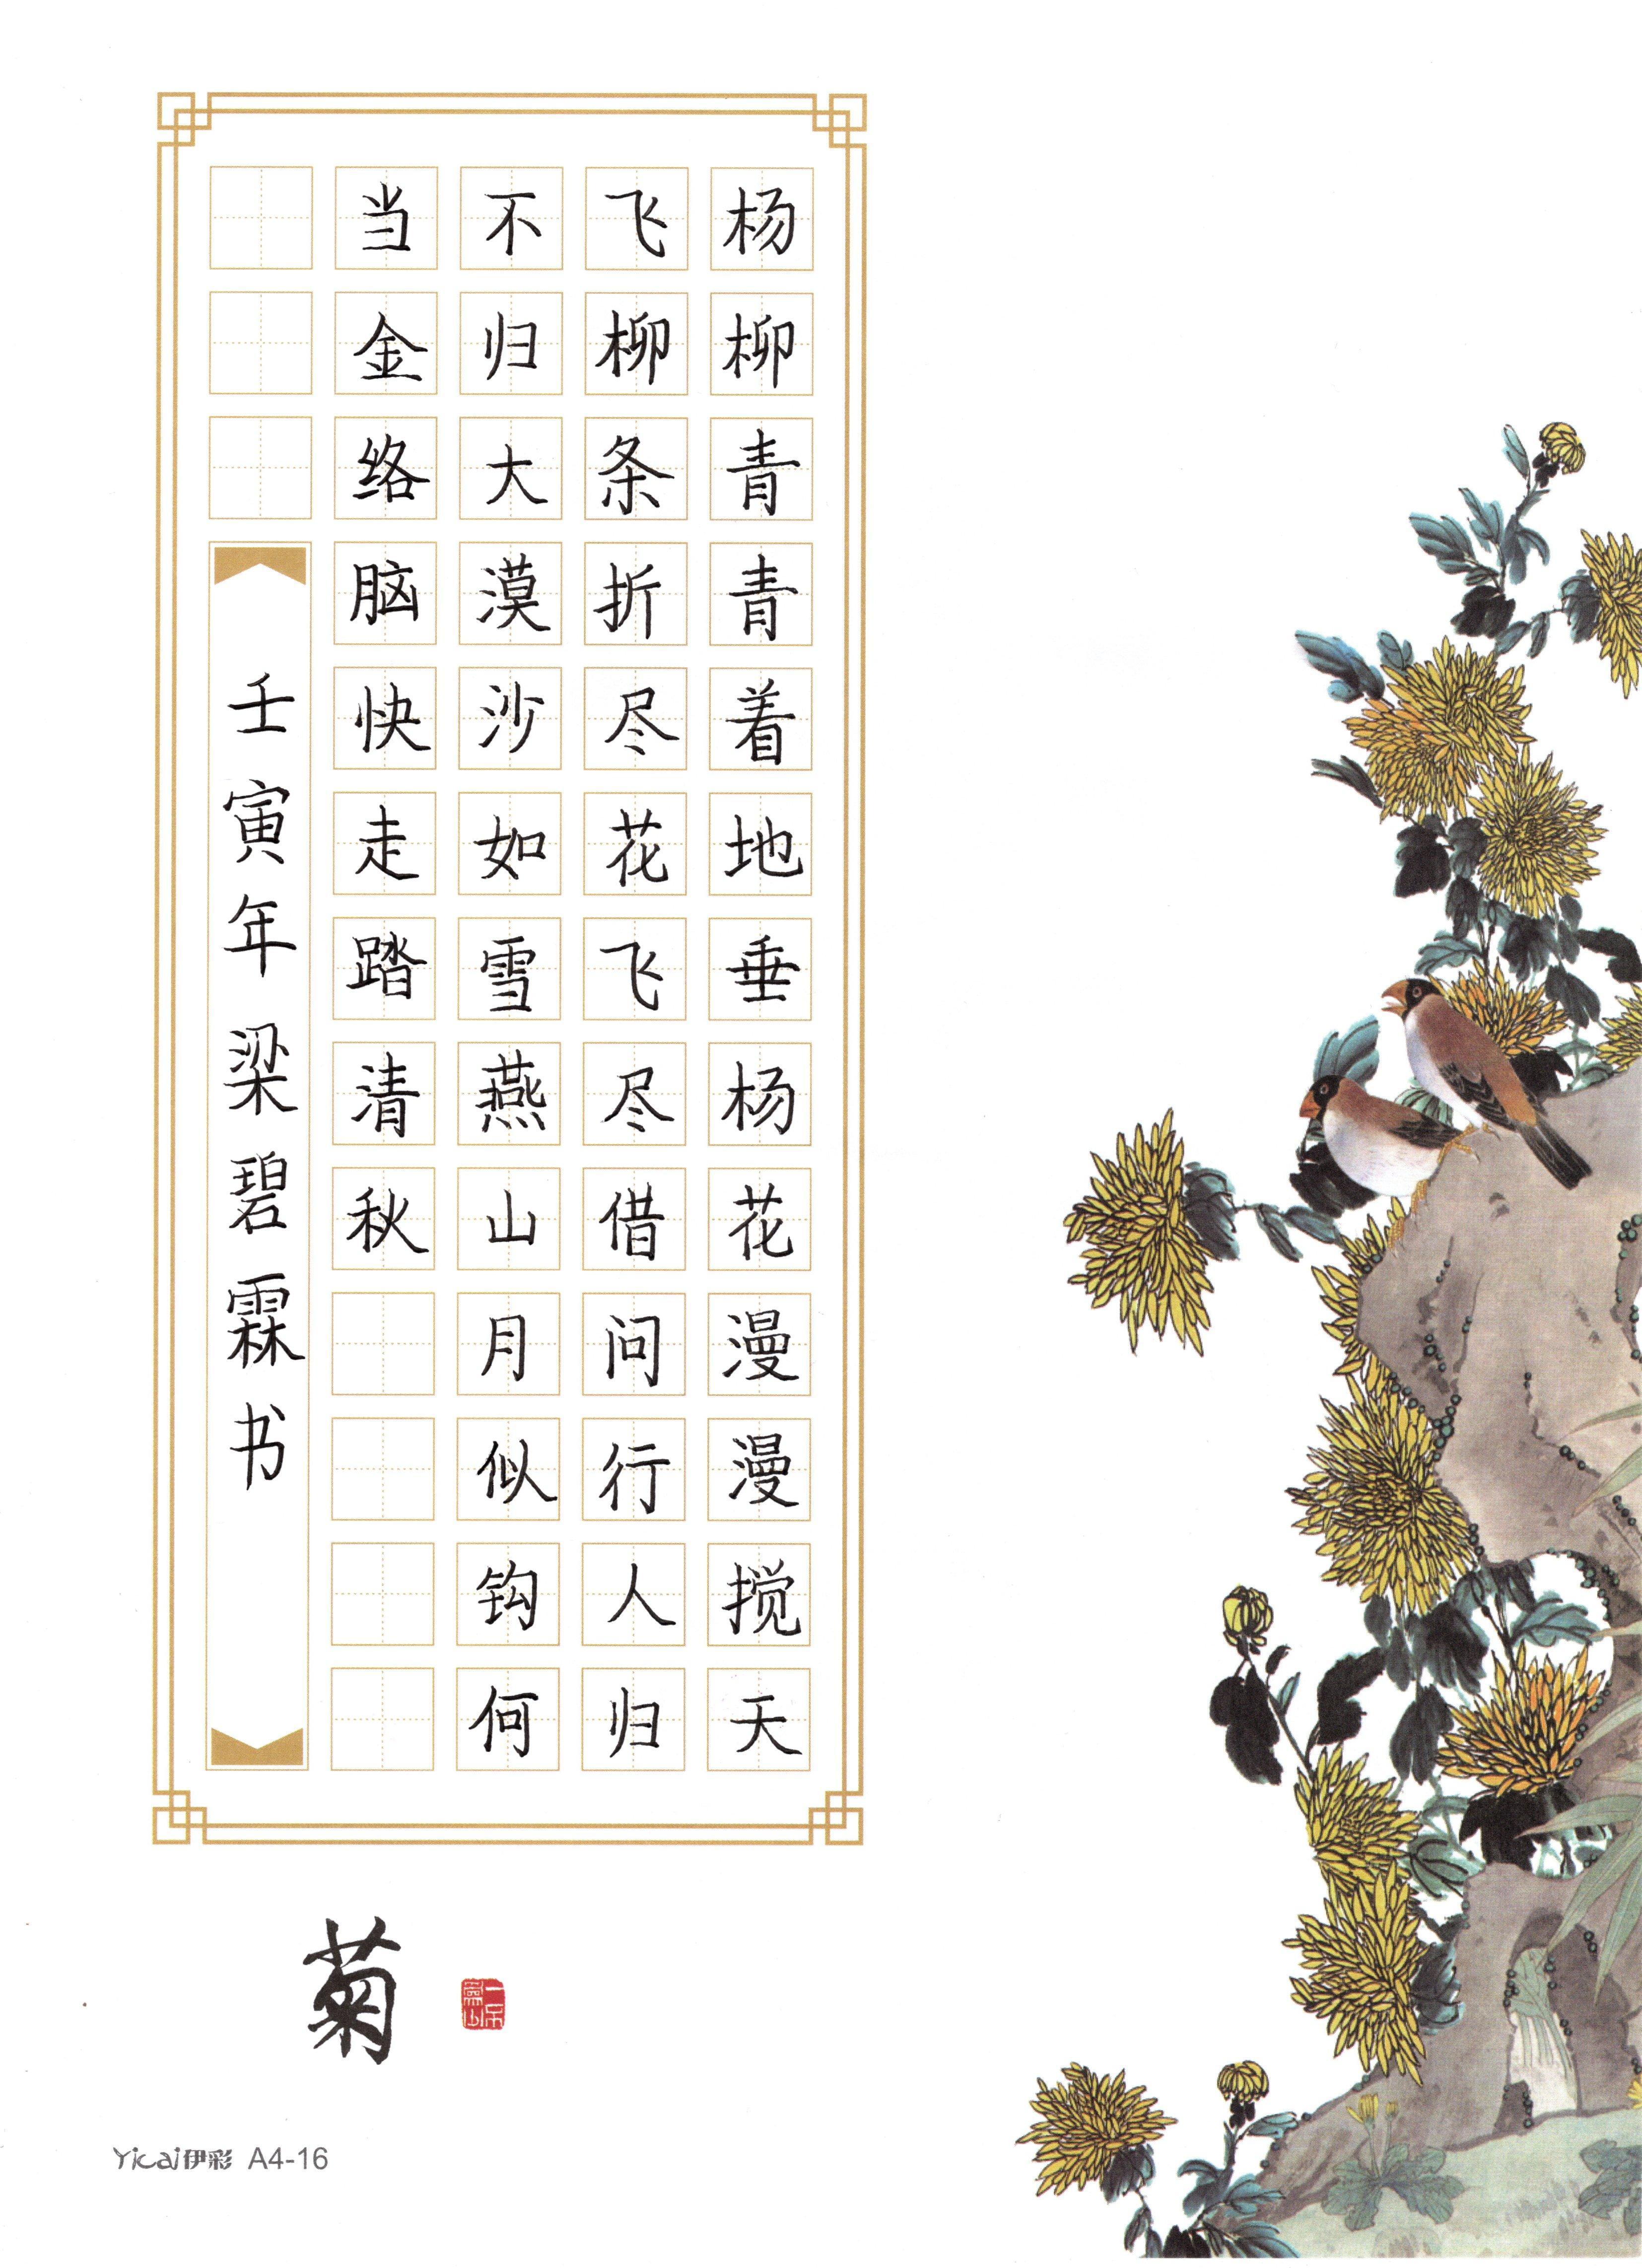 杨柳青青着地垂杨花漫漫搅天
飞柳条折尽花飞尽借问行人归
不归大漠沙如雪燕山月似钩何
当金络脑快走踏清秋
壬寅年梁碧霖书
菊
Yicai伊彩 A4-16